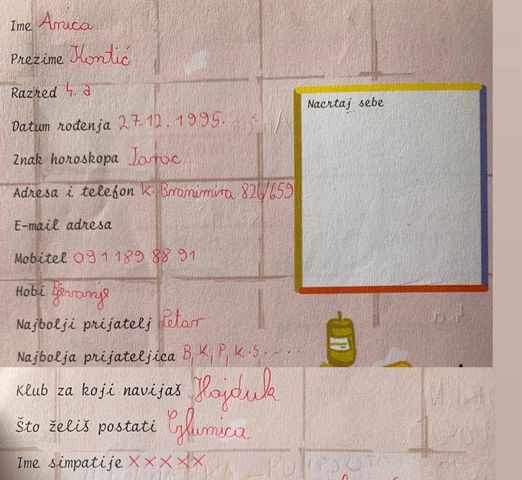 Ime Anica
Prezime Kontić
Razred 4. a
Datum rođenja 27.12.1995.
Znak horoskopa Jarac
Adresa i telefon K. Branimira 826/659
E-mail adresa
Mobitel 091 189 88 91
Hobi Pjevanje
Najbolji prijatelj Petar
Najbolja prijateljica B, K, P, K. S. . . . .
Klub za koji navijaš Hajduk
Što želiš postati Glumica
Ime simpatije XXXXX
Nacrtaj sebe